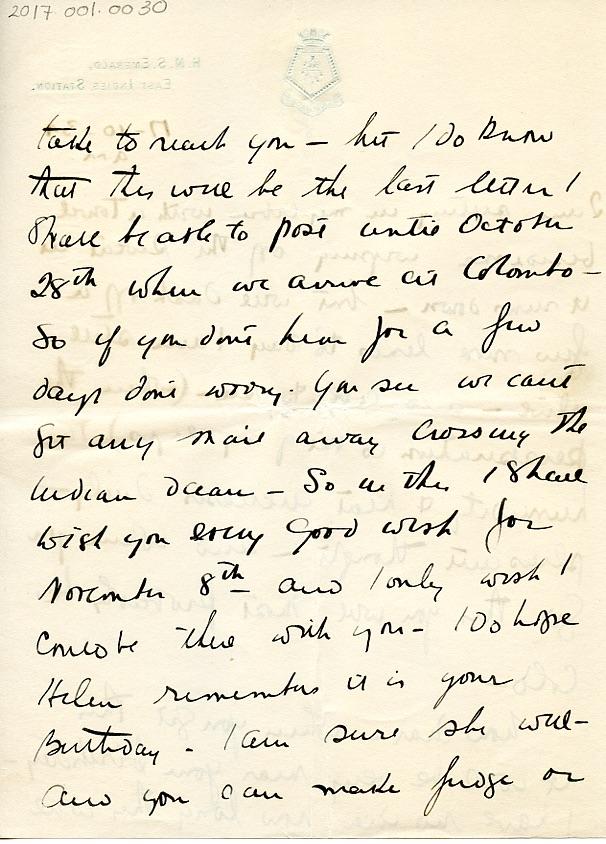 2017.001.0030
H.M.S. Emerald,
East Indies Station.
take to reach you – but I do know
that this will be the last letter I
shall be able to post until October
28th when we arrive at Colombo –
So if you don't hear for a few
days don't worry. You see we can't
get any mail away crossing the
Indian Ocean – So in this I shall
wish you every good wish for
November 8th – and I only wish I
could be there with you – I do hope
Helen remembers it is your
Birthday – I am sure she will –
and you can make fudge or